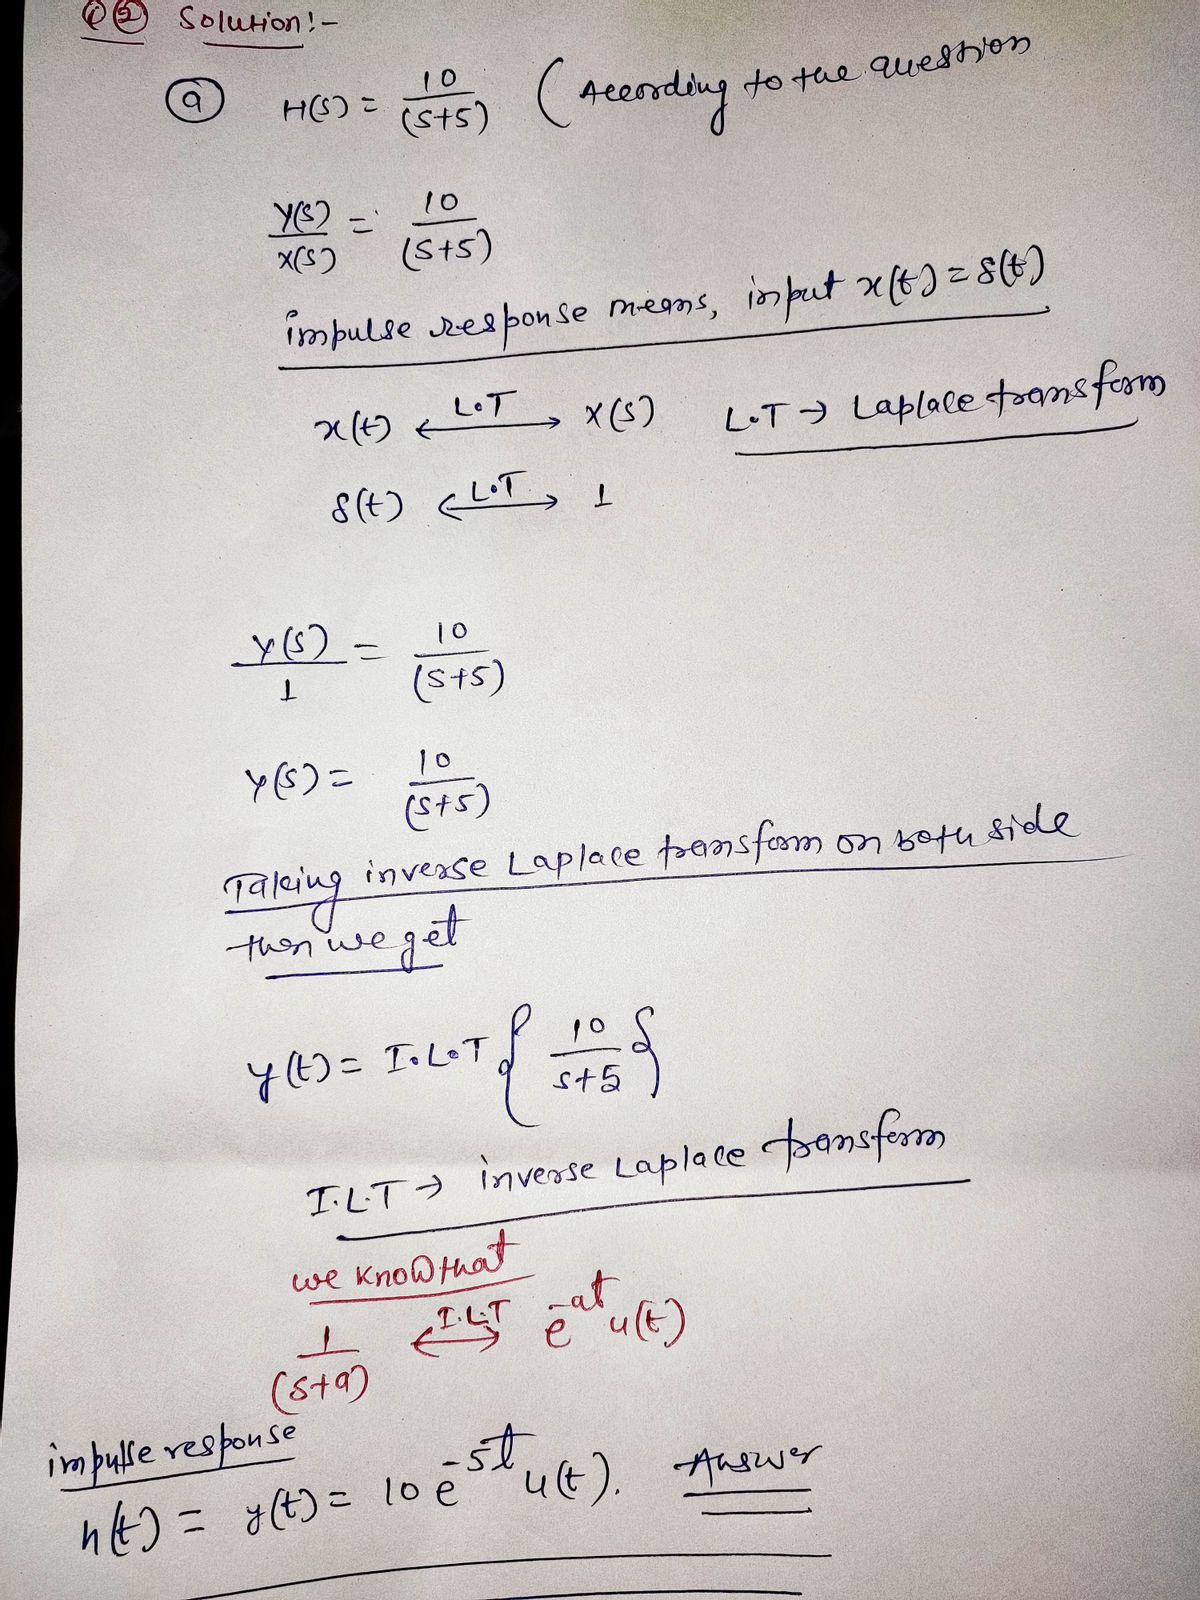 Q② Solution:-
ⓐ H(S) = 10/(S+5) ( According to the question
Y(S)/X(S) = 10/(S+5)
impulse response means, input x(t) = δ(t)
x(t) ←L.T→ X(S) L.T → Laplace transform
δ(t) ←L.T→ 1
Y(S)/1 = 10/(S+5)
Y(S) = 10/(S+5)
Taking inverse Laplace transform on both side
then we get
y(t) = I.L.T { 10/s+5 }
I.L.T → inverse Laplace transform
we know that
1/(S+a) ←I.L.T→ e^-at u(t)
impulse response
h(t) = y(t) = 10 e^-5t u(t). Answer